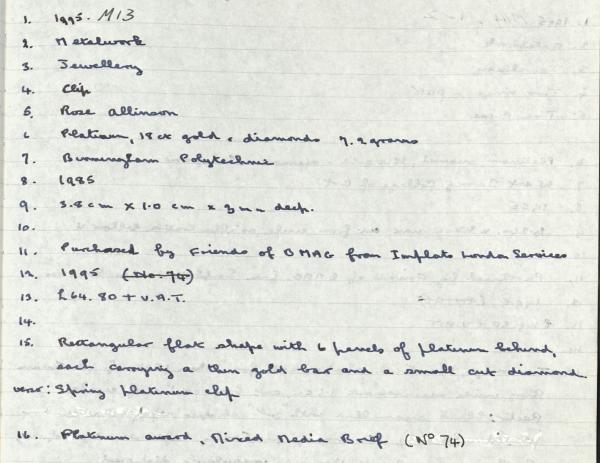 1. 1995. M13
2. Metalwork
3. Jewellery
4. Clip
5. Rose Allinson
6 Platinum, 18 ct gold & diamonds 7.2 grams
7. Birmingham Polytechnic
8. 1985
9. 3.8 cm x 1.0 cm x 3mm deep.
10.
11. Purchased by Friends of BMAG from Implats London Services
12. 1995 (No. 74)
13. £64.80 + V.A.T.
14.
15. Rectangular flat shape with 6 panels of platinum behind,
each carrying a thin gold bar and a small cut diamond
rear: Spring platinum clip
16. Platinum award, Mixed Media Brief (No 74)